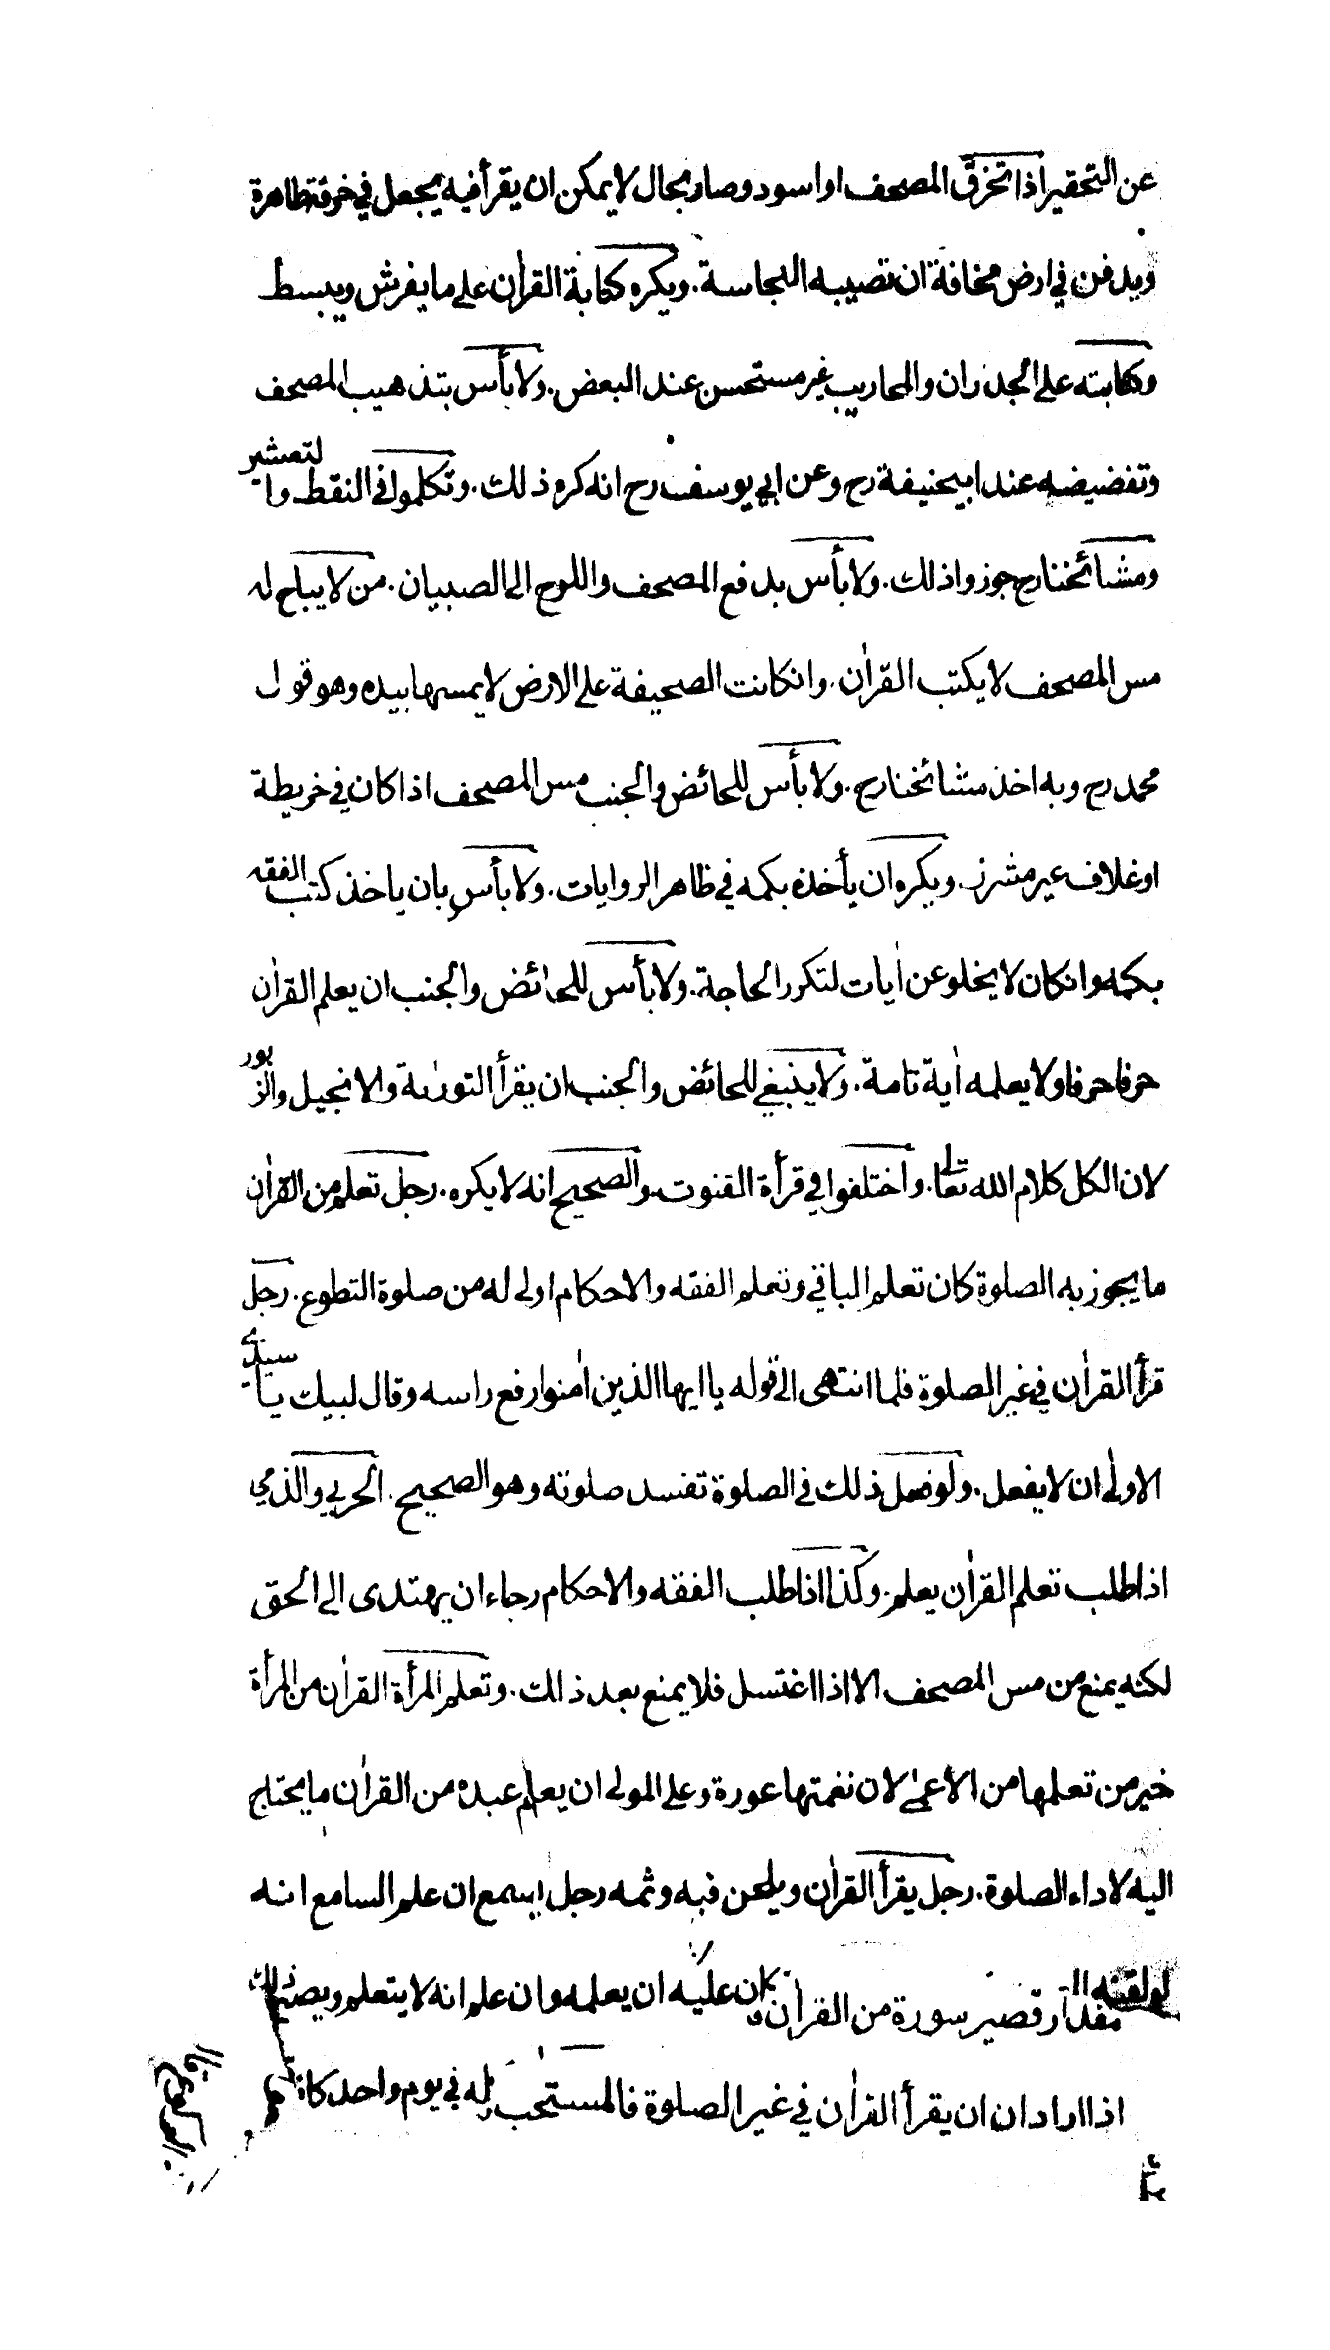 عن التحقير اذا تخرق المصحف او اسود وصار بحال لا يمكن ان يقرأ فيه يجعل في خرقة طاهرة
ويدفن في ارض مخافة ان تصيبه النجاسة. ويكره كتابة القراٰن على ما يفرش ويبسط
وكتابته على الجدران والمحاريب غير مستحسن عند البعض. ولا بأس بتذهيب المصحف
وتفضيضه عند ابيحنيفة رح وعن ابي يوسف رح انه كره ذلك. وتكلموا في النقط والتعشير
ومشائخنا رح جوزوا ذلك. ولا بأس بدفع المصحف واللوح الى الصبيان. من لا يباح له
مس المصحف لا يكتب القراٰن. وانكانت الصحيفة على الارض لا يمسها بيده وهو قول
محمد رح وبه اخذ مشائخنا رح. ولا بأس للحائض والجنب مس المصحف اذا كان في خريطة
او غلاف غير مشرز. ويكره ان يأخذه بكمه في ظاهر الروايات. ولا بأس بان ياخذ كتب الفقه
بكمه وانكان لا يخلو عن اٰيات لتكرر الحاجة. ولا بأس للحائض والجنب ان يعلم القراٰن
حرفا حرفا ولا يعلمه اٰية تامة. ولا ينبغي للحائض والجنب ان يقرأ التورٰية والانجيل والزبور
لان الكل كلام الله تعالى. واختلفوا في قرأة القنوت والصحيح انه لا يكره. رجل تعلم من القراٰن
ما يجوز به الصلوة كان تعلم الباقي وتعلم الفقه والاحكام اولى له من صلوة التطوع. رجل
قرأ القراٰن في غير الصلوة فلما انتهى الى قوله يا ايها الذين اٰمنوا رفع راسه وقال لبيك يا سيدي
الاولى ان لا يفعل. ولو فعل ذلك في الصلوة تفسد صلوته وهو الصحيح. الحربي والذمي
اذا طلب تعلم القراٰن يعلم. وكذا اذا طلب الفقه والاحكام رجاء ان يهتدى الى الحق
لكنه يمنع من مس المصحف الا اذا اغتسل فلا يمنع بعد ذلك. وتعلم المرأة القراٰن من المرأة
خير من تعلمها من الأعمى لان نغمتها عورة وعلى المولى ان يعلم عبده من القراٰن ما يحتاج
اليه لاداء الصلوة. رجل يقرأ القراٰن ويلحن فيه وثمه رجل يسمع ان علم السامع انه
لو لقنه كان عليه ان يعلمه وان علم انه لا يتعلم ويصنع ذلك
مقدار قصير سورة من القراٰن
اذا اراد ان يقرأ القراٰن في غير الصلوة فالمستحب له في يوم واحد كان